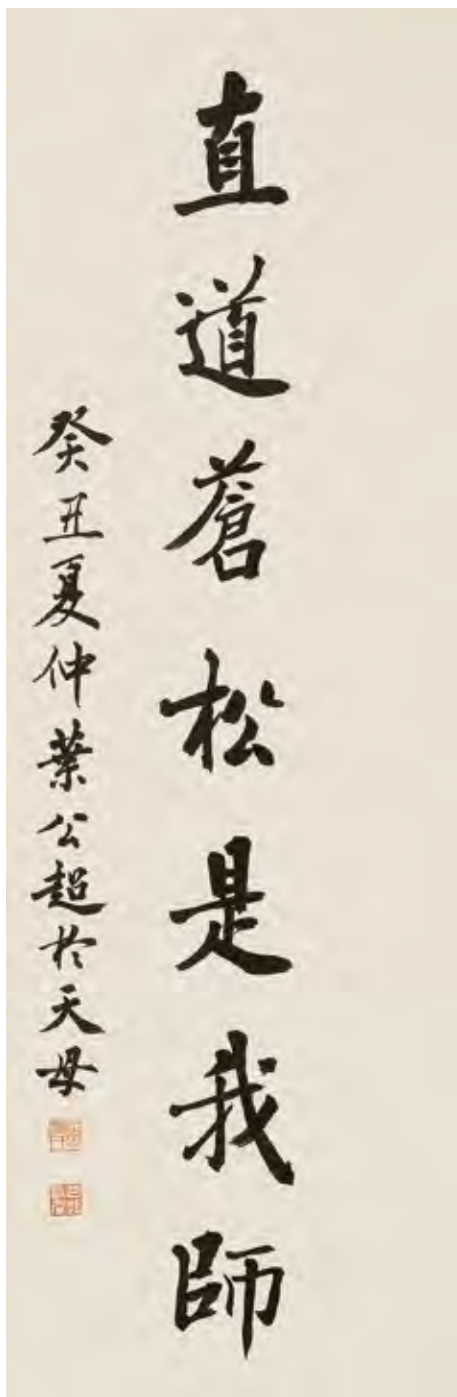 直道蒼松是我師
癸丑夏仲葉公超於天母